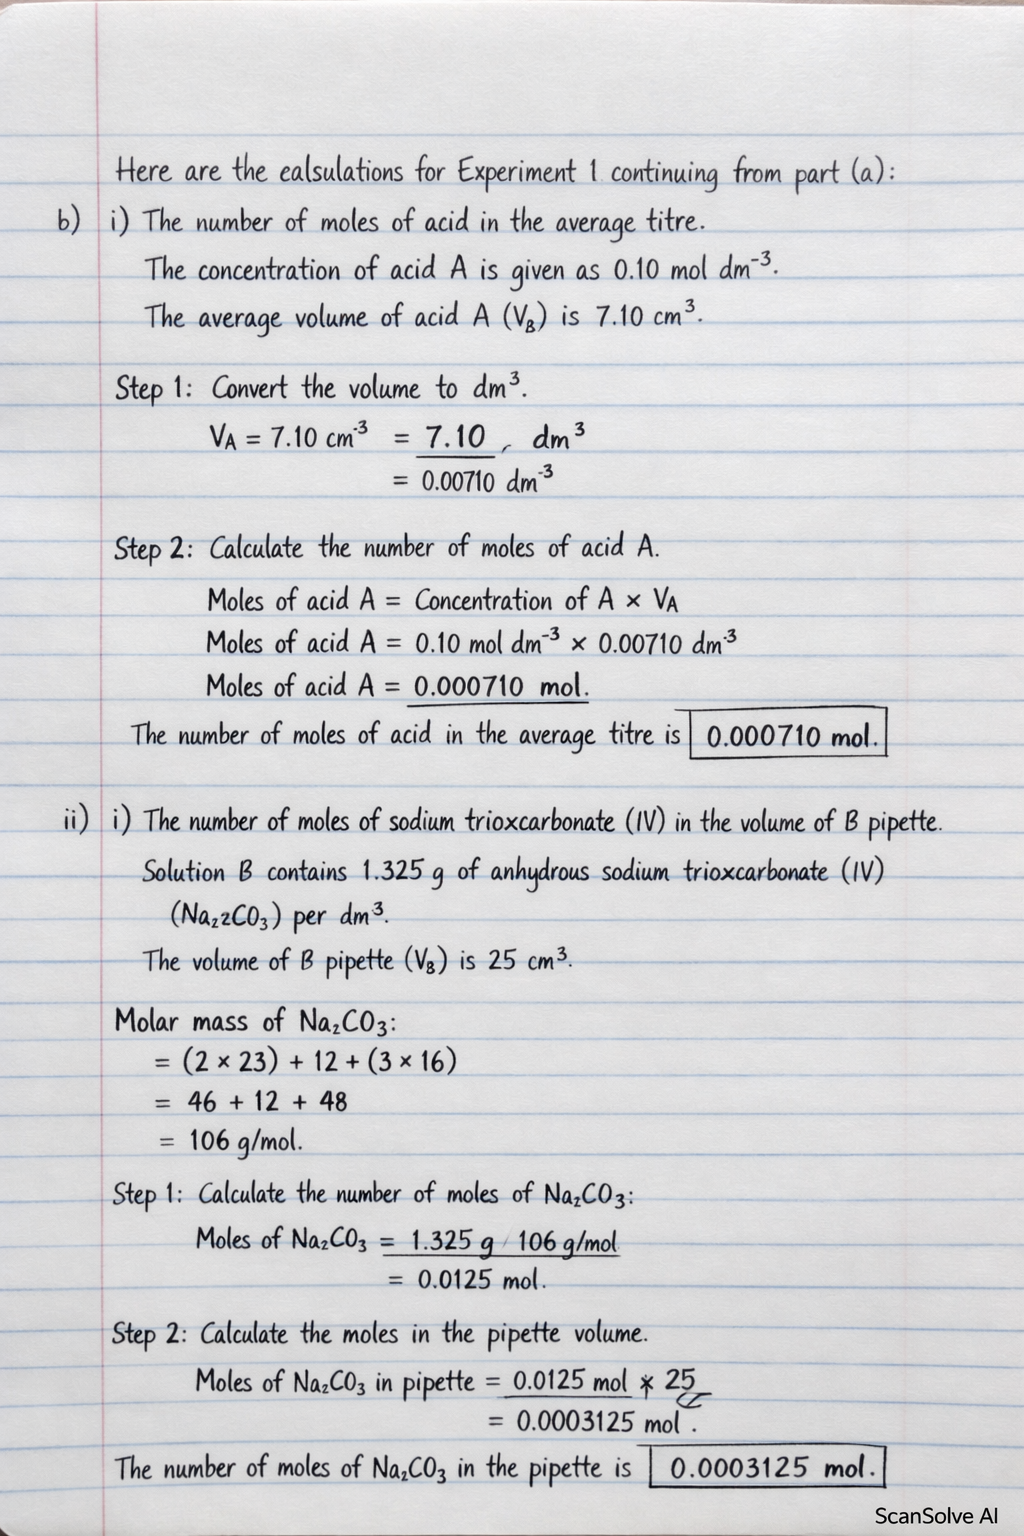 Here are the ealsulations for Experiment 1 continuing from part (a):
b) i) The number of moles of acid in the average titre.
The concentration of acid A is given as 0.10 mol dm⁻³.
The average volume of acid A (V₈) is 7.10 cm³.
Step 1: Convert the volume to dm³.
VA = 7.10 cm⁻³ = 7.10 , dm³
= 0.00710 dm⁻³
Step 2: Calculate the number of moles of acid A.
Moles of acid A = Concentration of A × VA
Moles of acid A = 0.10 mol dm⁻³ × 0.00710 dm⁻³
Moles of acid A = 0.000710 mol.
The number of moles of acid in the average titre is 0.000710 mol.
ii) i) The number of moles of sodium trioxcarbonate (IV) in the volume of B pipette.
Solution B contains 1.325 g of anhydrous sodium trioxcarbonate (IV)
(Na₂₂CO₃) per dm³.
The volume of B pipette (V₈) is 25 cm³.
Molar mass of Na₂CO₃:
= (2 × 23) + 12 + (3 × 16)
= 46 + 12 + 48
= 106 g/mol.
Step 1: Calculate the number of moles of Na₂CO₃:
Moles of Na₂CO₃ = 1.325 g / 106 g/mol
= 0.0125 mol.
Step 2: Calculate the moles in the pipette volume.
Moles of Na₂CO₃ in pipette = 0.0125 mol * 25
= 0.0003125 mol.
The number of moles of Na₂CO₃ in the pipette is 0.0003125 mol.
ScanSolve AI